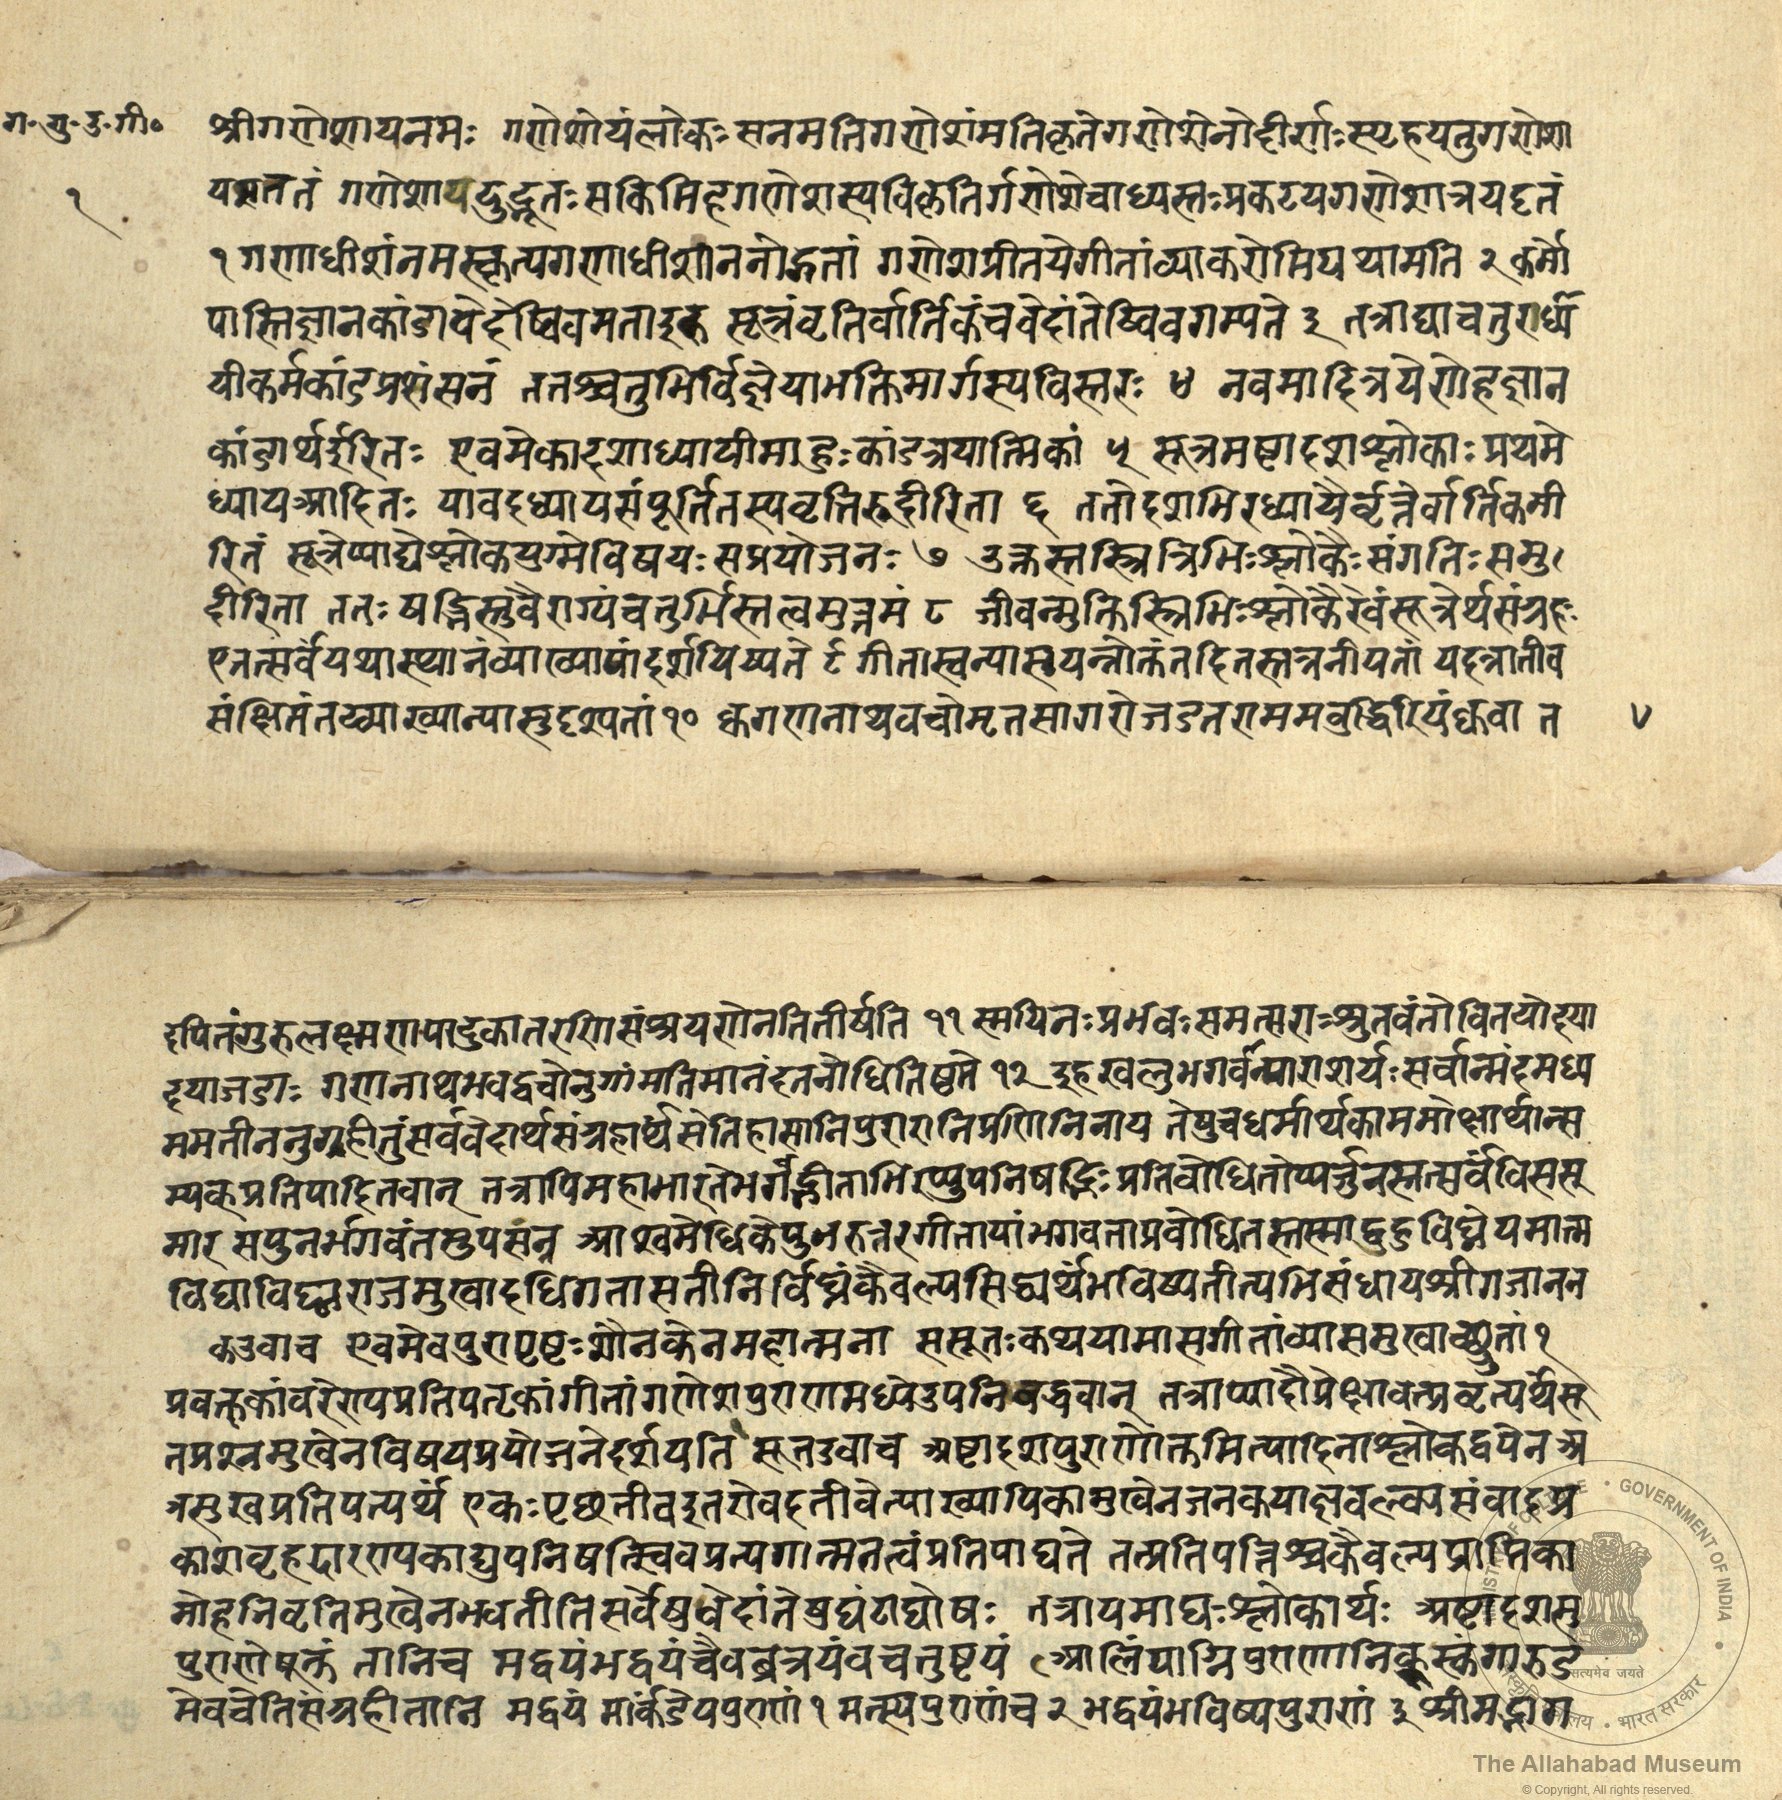 ग॰गु॰उ॰गी॰
श्रीगणेशायनमः गणेशोयंलोकःसनमतिगणेशंमतिकृतेगणेशेनोद्गीर्णाःस्पृहयतुगणेशा
१
यसततं गणेशायद्भुतःसकिमिहगणेशस्यविकृतिर्गणेशेवाध्यस्तःप्रकटयगणेशात्रयदृतं
१ गणाधीशंनमस्कृत्यगणाधीशाननोद्गतां गणेशप्रीतयेगीतांव्याकरोमियथामति २ कर्मो
पास्तिज्ञानकांडायेदेष्विवमतादुक्त सूत्रंवृतिर्वार्तिकंचवेदांतेष्विवगम्यते ३ तत्राद्याचतुरार्ध्या
यीकर्मकांडप्रशंसनं ततश्चतुर्भिर्विज्ञेयाभक्तिमार्गस्यविस्तरः ४ नवमादित्रयेणेहज्ञान
कांडार्थईरितः एवमेकादशाध्यायीमाहुःकांडत्रयात्मिकां ५ सूत्रमष्टादशश्लोकाःप्रथमे
ध्यायआदितः यावदध्यायसंपूर्तितस्यवृत्तिरुदीरिता ६ ततोदशभिरध्यायैर्वृत्तेर्वार्तिकमी
रितं सूत्रेप्याद्येश्लोकयुग्मेविषयःसप्रयोजनः ७ उक्तस्तस्त्रित्रिभिःश्लोकैःसंगतिःसमु
दीरिता ततःषड्भिस्तुवैराग्यंचतुर्भिस्तत्वमुत्तमं ८ जीवन्मुक्तिस्त्रिभिःश्लोकैरेवंसूत्रेर्थसंग्रहः
एतत्सर्वेयथास्थानंव्याख्यायांदर्शयिष्यते ९ गीतास्वन्यासुयन्नोक्तंतदितस्तत्रनीयतां यदत्रातीव
संक्षिप्तंतद्व्याख्यान्यासुदृश्यतां १० क्वगणनाथवचोमृतसागरोजडतराममबुद्धिरियंक्ववा त
४
दपितंगुरुलक्ष्मणपादुकातरणिसंश्रयणेनतितीर्षति ११ स्मयिनःप्रभवःसमत्सराःश्रुतवंतोवितयोद्दया
दयाजडाः गणनाथभवद्वचोनुगांमतिमानंदतनौधितिष्ठते १२ इहखलुभगवान्पाराशर्यःसर्वान्मंदमध्य
ममतीननुगृहीतुंसर्ववेदार्थसंग्रहार्थंसेतिहासानिपुराणानिप्रणिनिनाय तेषुचधर्मार्थकाममोक्षार्थान्स
म्यक्प्रतिपादितवान् तत्रापिमहाभारतेभगवद्गीताभिरप्युपनिषद्भिःप्रतिबोधितोप्यर्जुनस्तत्सर्वंविसस्
मार सपुनर्भगवंतमुपसन्न आश्वमेधिकेपुनरुत्तरगीतायांभगवताप्रबोधितस्तस्माद्बहुविघ्नेयमात्म
विद्याविघ्नराजमुखादधिगतासतीनिर्विघ्नंकैवल्यसिद्ध्यर्थंभविष्यतीत्यभिसंधायश्रीगजानन
कउवाच एवमेवपुरापृष्टःशौनकेनमहात्मना ससूतःकथयामासगीतांव्यासमुखाच्छ्रुतां १
प्रवक्तृकांवरेण्यप्रतिपतृकांगीतांगणेशपुराणमध्येउपनिबद्धवान् तत्राप्यादौप्रेक्षावत्प्रवृत्यर्थंसू
तप्रश्नमुखेनविषयप्रयोजनेदर्शयति सूतउवाच अष्टादशपुराणोक्तमित्यादिनाश्लोकद्वयेनअ
त्रसुखप्रतिपत्यर्थं एकःपृच्छतीवइतरोवदतीवेत्याख्यायिकामुखेनजनकयाज्ञवल्क्यसंवादप्र
काशबृहदारण्यकाद्युपनिषत्स्विवप्रत्यगात्मतत्वंप्रतिपाद्यते तत्प्रतिपत्तिश्चकैवल्यप्राप्तिका
मोहनिवृतिमुखेनभवतीतिसर्वेषुवेदांतेषुघंटाघोषः तत्रायमाद्यःश्लोकार्थः अष्टादशसु
पुराणेषूक्तं तानिच मद्वयंभद्वयंचैवब्रत्रयंवचतुष्टयं आलिंपाग्निपुराणानिकूस्कंगारुड
मेवचेतिसंग्रहीतानि मद्वयं मार्कंडेयपुराणं १ मत्स्यपुराणंच २ भद्वयंभविष्यपुराणं ३ श्रीमद्भाग
GOVERNMENT OF INDIA
सत्यमेव जयते
भारत सरकार
The Allahabad Museum
© Copyright, All rights reserved.